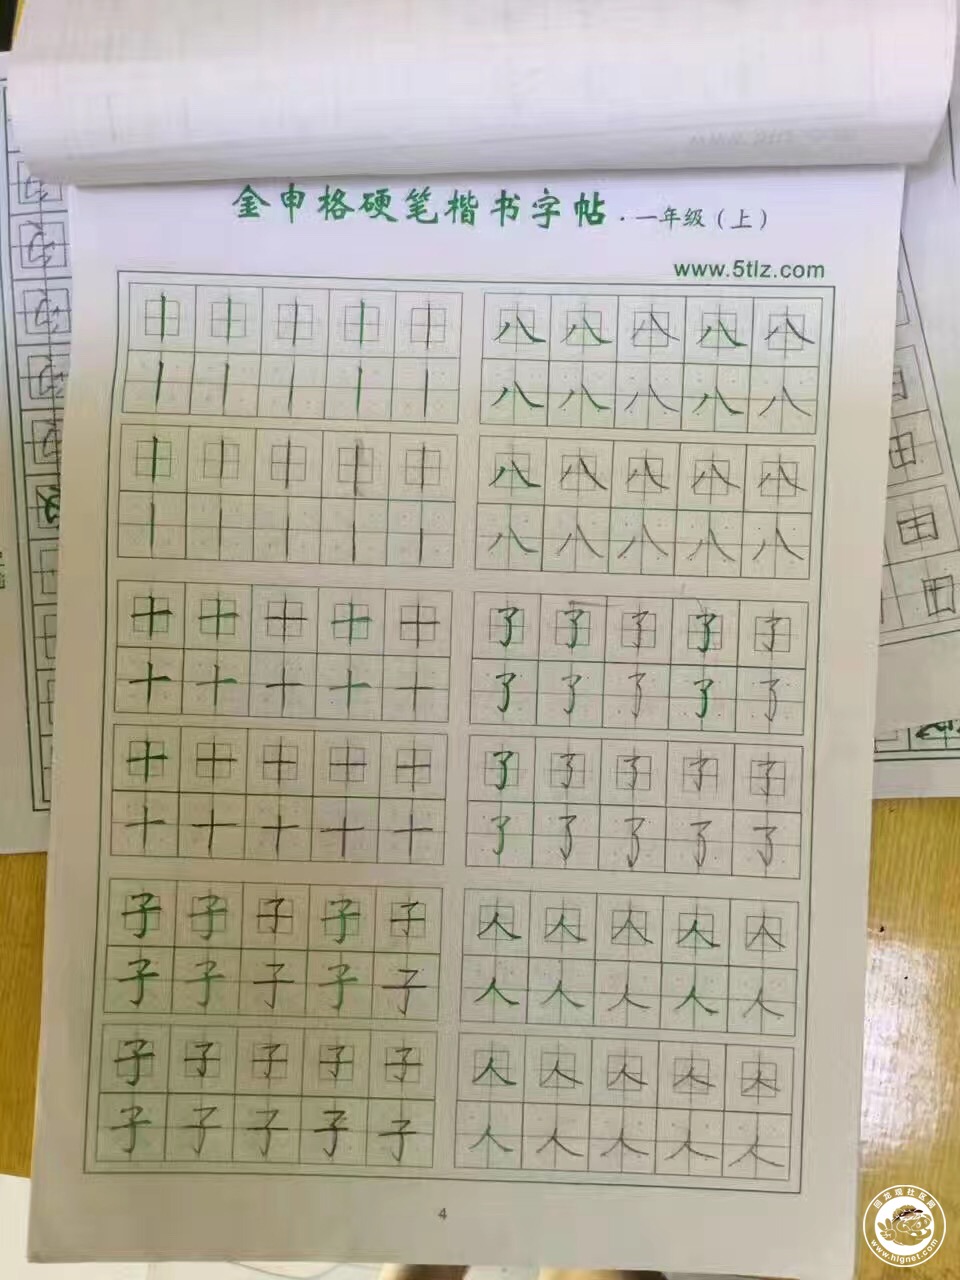 金申格硬笔楷书字帖·一年级（上）
www.5tlz.com
丨丨丨丨丨 八八八八八
丨丨丨丨丨 八八八八八
丨丨丨丨丨 八八八八八
丨丨丨丨丨 八八八八八
十十十十十 了了了了了
十十十十十 了了了了了
十十十十十 了了了了了
十十十十十 了了了了了
子子子子子 人人人人人
子子子子子 人人人人人
子子子子子 人人人人人
子子子子子 人人人人人
4
回龙观社区网
www.hlgnet.com